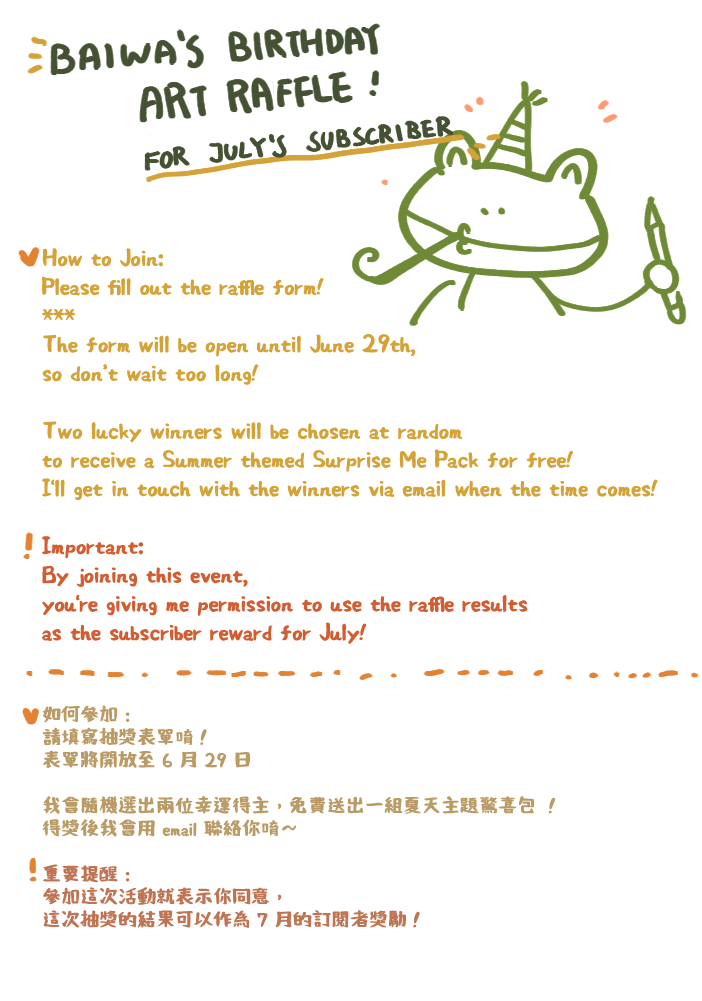 BAIWA'S BIRTHDAY
ART RAFFLE!
FOR JULY'S SUBSCRIBER
How to Join:
Please fill out the raffle form!
***
The form will be open until June 29th,
so don't wait too long!
Two lucky winners will be chosen at random
to receive a Summer themed Surprise Me Pack for free!
I'll get in touch with the winners via email when the time comes!
! Important:
By joining this event,
you're giving me permission to use the raffle results
as the subscriber reward for July!
如何參加:
請填寫抽獎表單唷!
表單將開放至 6 月 29 日
我會隨機選出兩位幸運得主,免費送出一組夏天主題驚喜包 !
得獎後我會用 email 聯絡你唷~
! 重要提醒:
參加這次活動就表示你同意,
這次抽獎的結果可以作為 7 月的訂閱者獎勵!